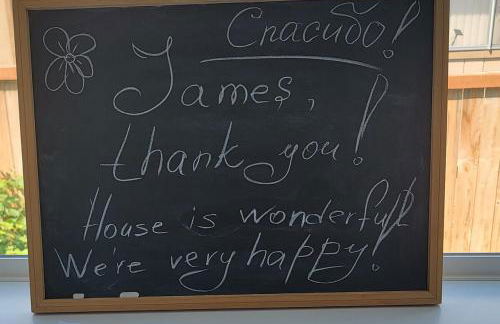 Спасибо!
James,
thank you!
House is wonderful!
We're very happy!